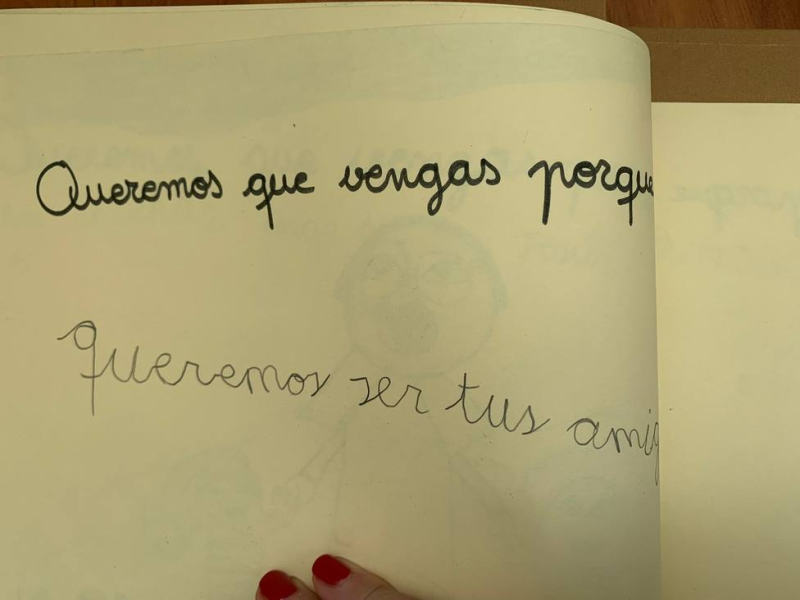 Queremos que vengas porque
queremos ser tus amig